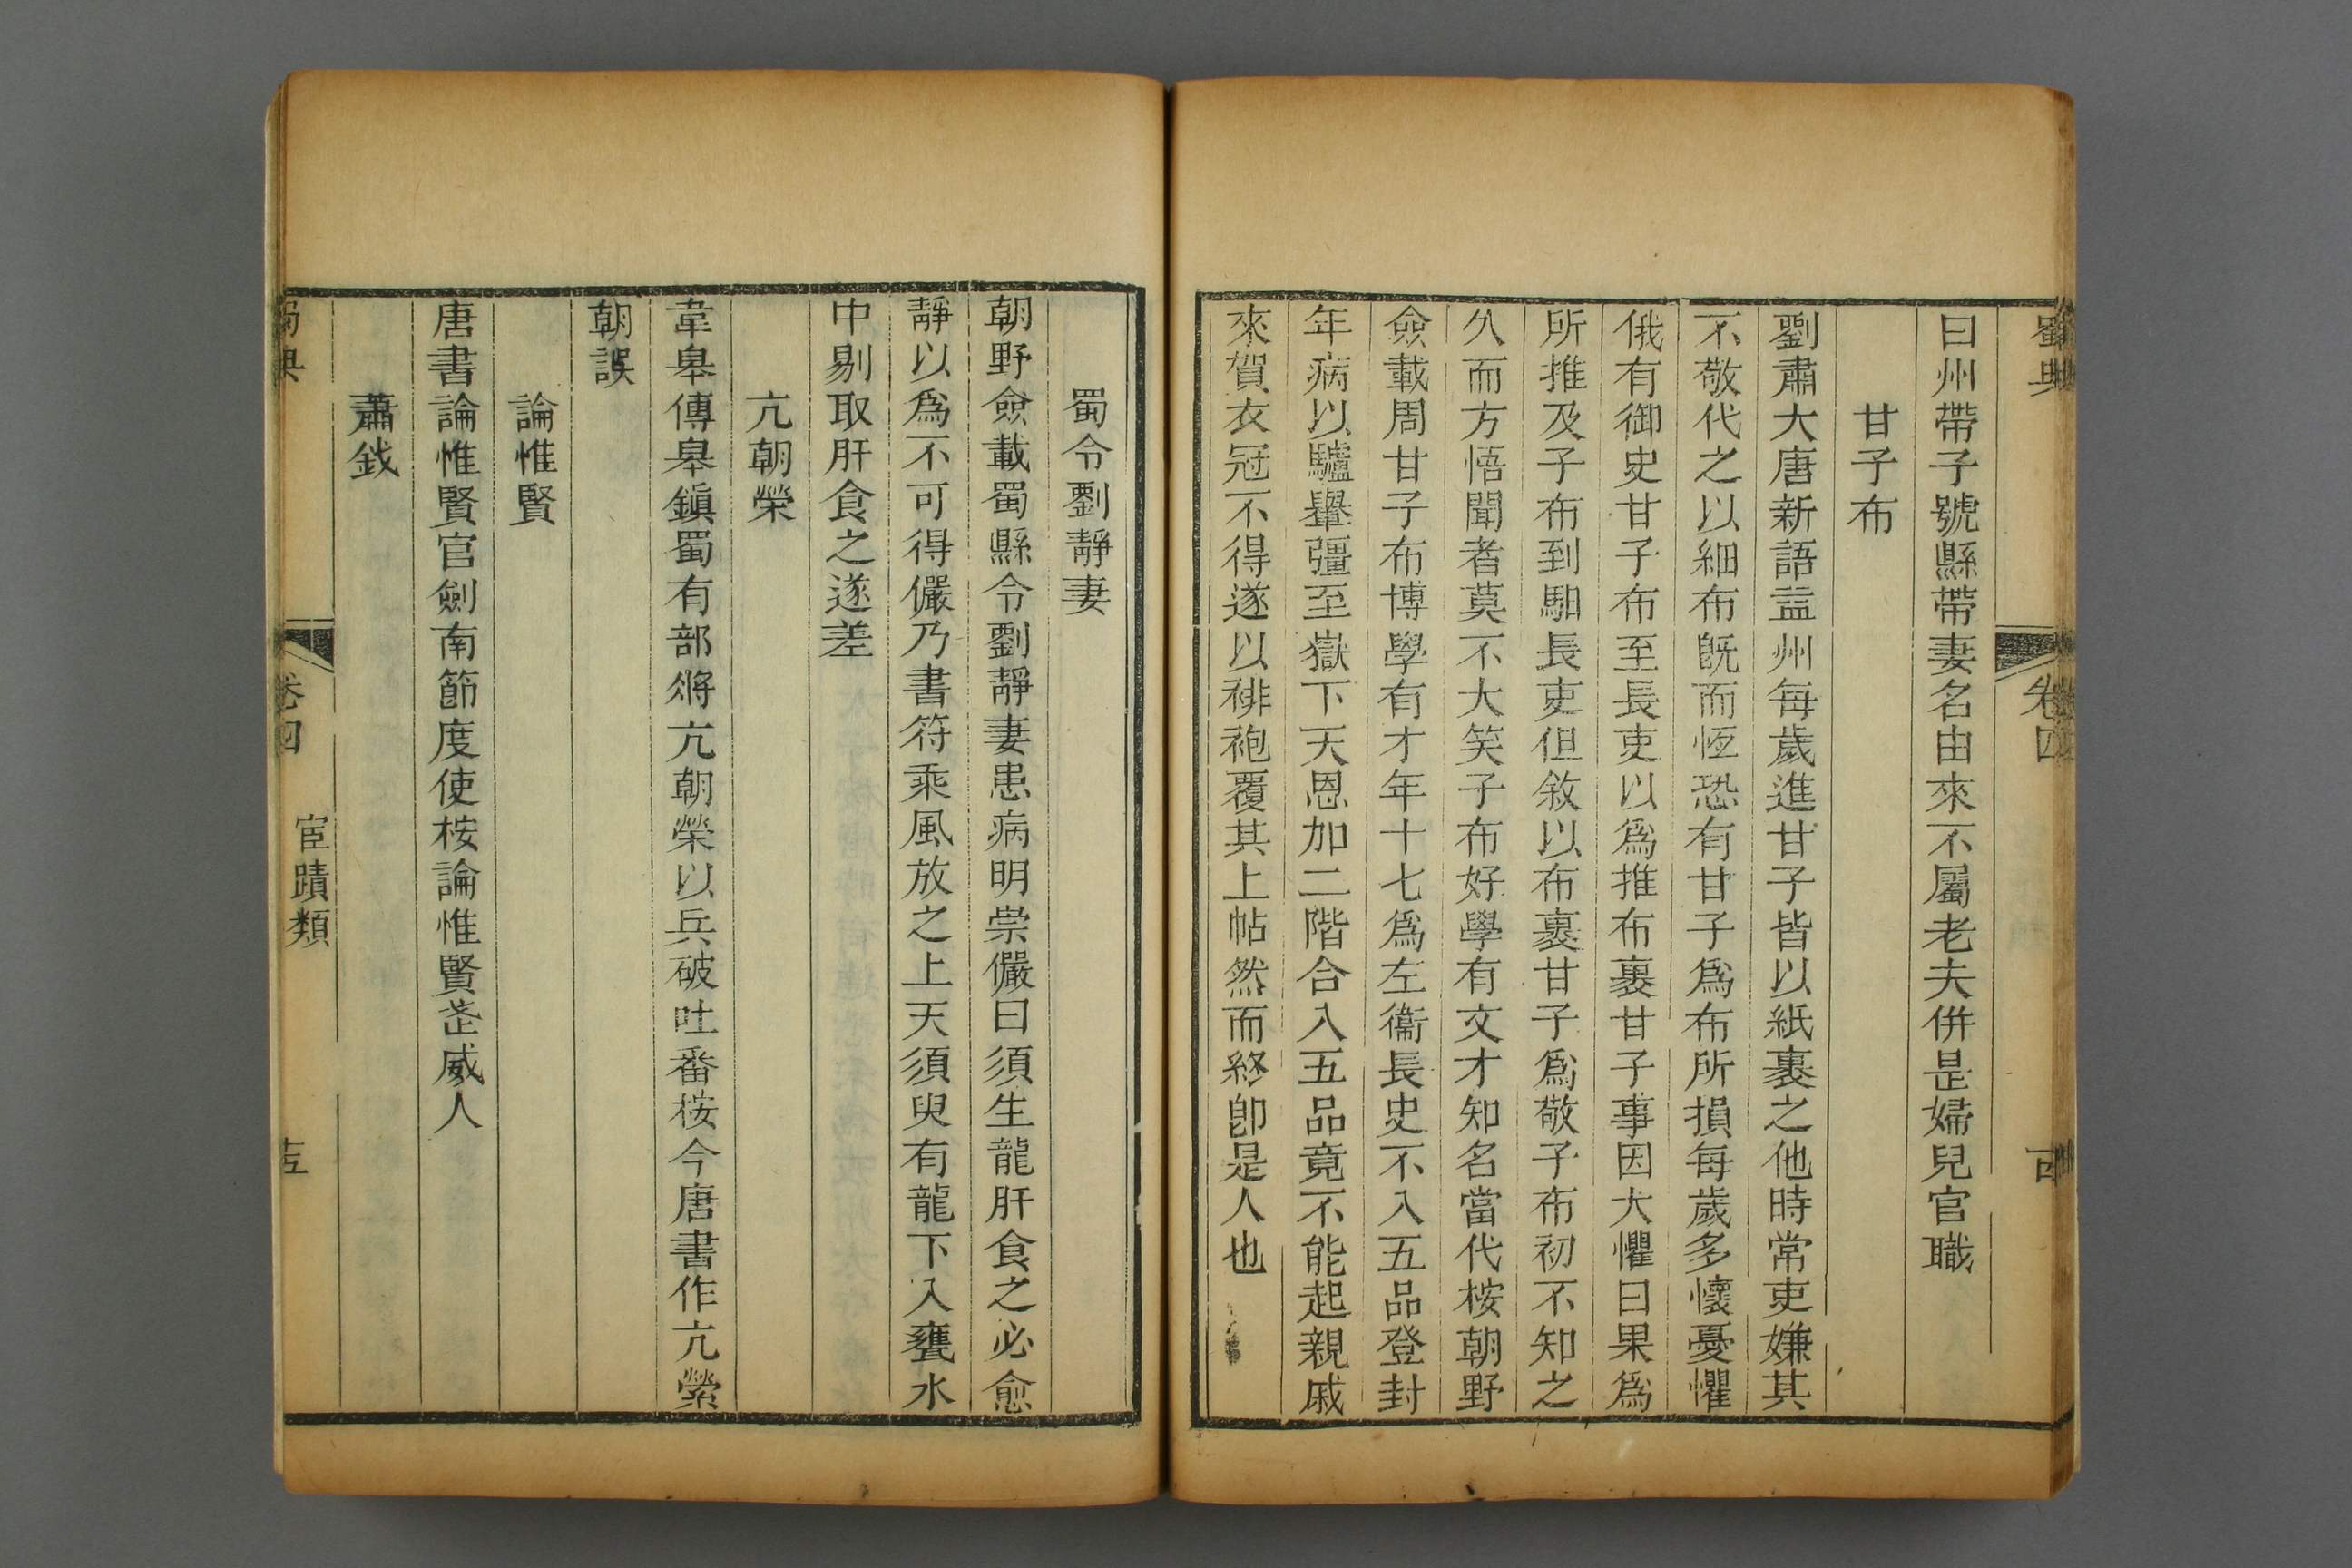 蜀典 卷四
曰州帶子號縣帶妻名由來不屬老夫併是婦兒官職
甘子布
劉肅大唐新語益州每歲進甘子皆以紙裹之他時常吏嫌其
不敬代之以細布既而恆恐有甘子爲布所損每歲多懷憂懼
俄有御史甘子布至長吏以爲推布裹甘子事因大懼曰果爲
所推及子布到馹長吏但敘以布裹甘子爲敬子布初不知之
久而方悟聞者莫不大笑子布好學有文才知名當代桉朝野
僉載周甘子布博學有才年十七爲左衞長史不入五品登封
年病以驢轝彊至嶽下天恩加二階合入五品竟不能起親戚
來賀衣冠不得遂以緋袍覆其上帖然而終卽是人也
蜀令劉靜妻
朝野僉載蜀縣令劉靜妻患病明崇儼曰須生龍肝食之必愈
靜以爲不可得儼乃書符乘風放之上天須臾有龍下入甕水
中剔取肝食之遂差
亢朝榮
韋皋傳皋鎭蜀有部將亢朝榮以兵破吐番桉今唐書作亢縈
朝誤
論惟賢
唐書論惟賢官劍南節度使桉論惟賢武威人
蕭鉞
蜀典 卷四 宦蹟類